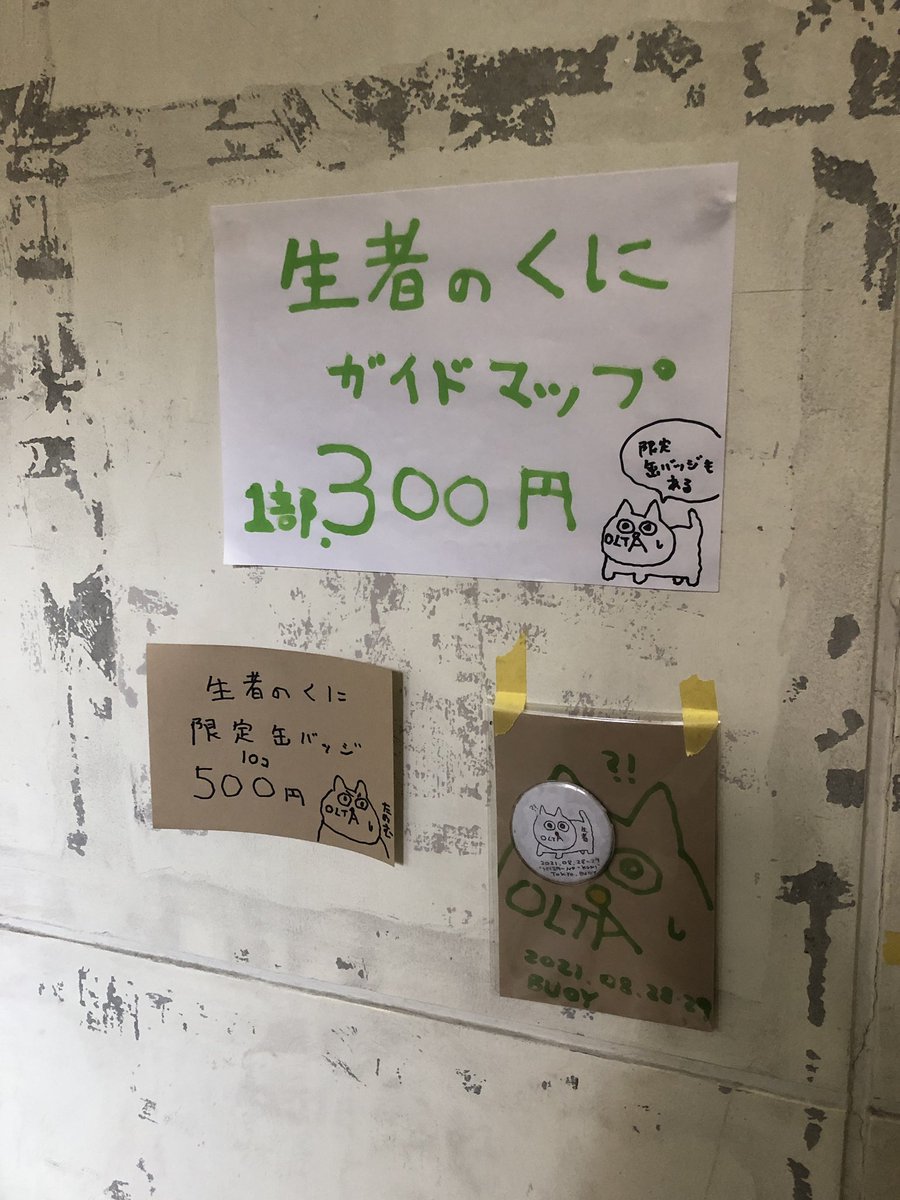 生者のくに
ガイドマップ
1部.300円
限定
缶バッジも
ある
OLTA
生者のくに
限定缶バッジ
10コ
500円
OLTA
たのむ
?!
OLTA
生者
2021.08.28-29
Tokyo, BUoY
OLTA
2021.08.28-29
BUOY